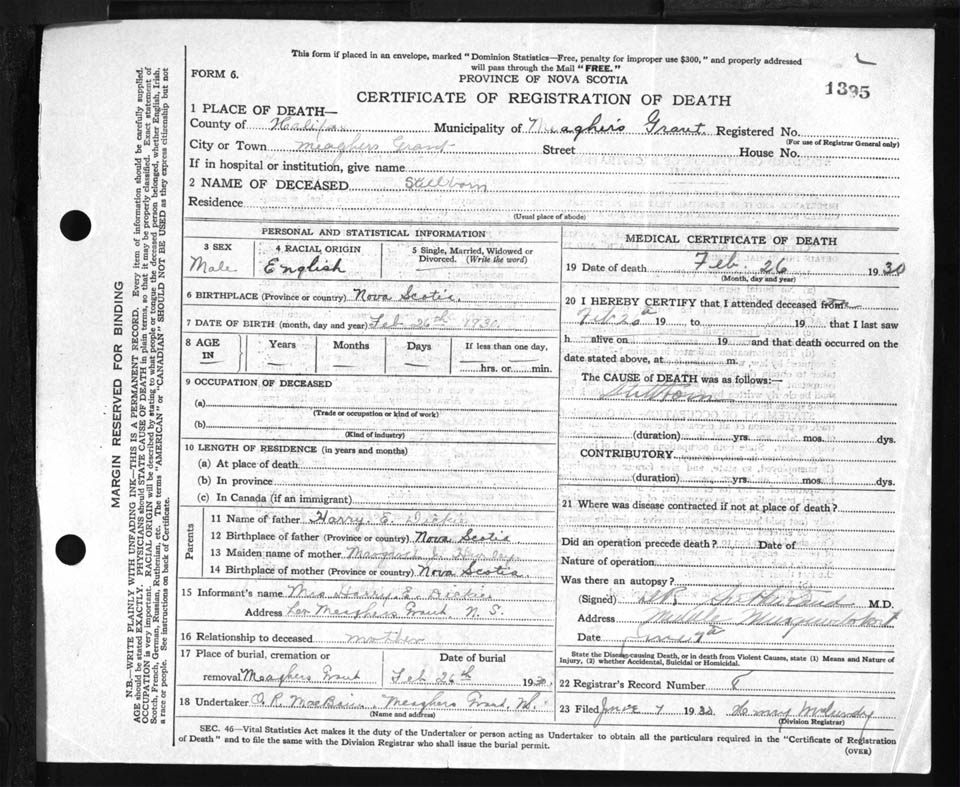 This form if placed in an envelope, marked "Dominion Statistics—Free, penalty for improper use $300," and properly addressed
will pass through the Mail "FREE."
FORM 6.
PROVINCE OF NOVA SCOTIA
1395
CERTIFICATE OF REGISTRATION OF DEATH
1 PLACE OF DEATH—
County of Halifax Municipality of Meagher's Grant Registered No.
(For use of Registrar General only)
City or Town Meaghers Grant Street House No.
If in hospital or institution, give name
2 NAME OF DECEASED Stillborn
Residence
(Usual place of abode)
PERSONAL AND STATISTICAL INFORMATION
3 SEX
Male
4 RACIAL ORIGIN
English
5 Single, Married, Widowed or
Divorced. (Write the word)
6 BIRTHPLACE (Province or country) Nova Scotia.
7 DATE OF BIRTH (month, day and year) Feb 26th 1930.
8 AGE
IN
Years
Months
Days
If less than one day,
hrs. or min.
9 OCCUPATION OF DECEASED
(a)
(Trade or occupation or kind of work)
(b)
(Kind of industry)
10 LENGTH OF RESIDENCE (in years and months)
(a) At place of death
(b) In province
(c) In Canada (if an immigrant)
Parents
11 Name of father Harry. E. Dickie
12 Birthplace of father (Province or country) Nova Scotia
13 Maiden name of mother
14 Birthplace of mother (Province or country) Nova Scotia
15 Informant's name Mrs Harry E. Dickie
Address Meaghers Grant N. S.
16 Relationship to deceased mother
17 Place of burial, cremation or
removal Meaghers Grant
Date of burial
Feb 26th 1930.
18 Undertaker O. R. MacBain, Meaghers Grant, N.S.
(Name and address)
MEDICAL CERTIFICATE OF DEATH
19 Date of death Feb. 26 1930
(Month, day and year)
20 I HEREBY CERTIFY that I attended deceased from
Feb 19 to 19 that I last saw
h alive on 19 and that death occurred on the
date stated above, at m.
The CAUSE of DEATH was as follows:—
Stillborn
(duration) yrs. mos. dys.
CONTRIBUTORY
(duration) yrs. mos. dys.
21 Where was disease contracted if not at place of death?
Did an operation precede death? Date of
Nature of operation
Was there an autopsy?
(Signed) Sutherland M.D.
Address Middle Musquodoboit
Date
State the Disease causing Death, or in death from Violent Causes, state (1) Means and Nature of
Injury, (2) whether Accidental, Suicidal or Homicidal.
22 Registrar's Record Number
23 Filed June 7 1930
(Division Registrar)
SEC. 46—Vital Statistics Act makes it the duty of the Undertaker or person acting as Undertaker to obtain all the particulars required in the "Certificate of Registration
of Death" and to file the same with the Division Registrar who shall issue the burial permit.
(OVER)
MARGIN RESERVED FOR BINDING
N.B.—WRITE PLAINLY WITH UNFADING INK—THIS IS A PERMANENT RECORD. Every item of information should be carefully supplied.
AGE should be stated EXACTLY. PHYSICIANS should STATE CAUSE OF DEATH in plain terms, so that it may be properly classified. Exact statement of
OCCUPATION is very important. RACIAL ORIGIN will be described by stating to what people or tongue the deceased person belonged, whether English, Irish,
Scotch, French, German, Russian, Ruthenian, etc. The terms "AMERICAN" or "CANADIAN" SHOULD NOT BE USED as they express citizenship but not
a race or people. See instructions on back of Certificate.